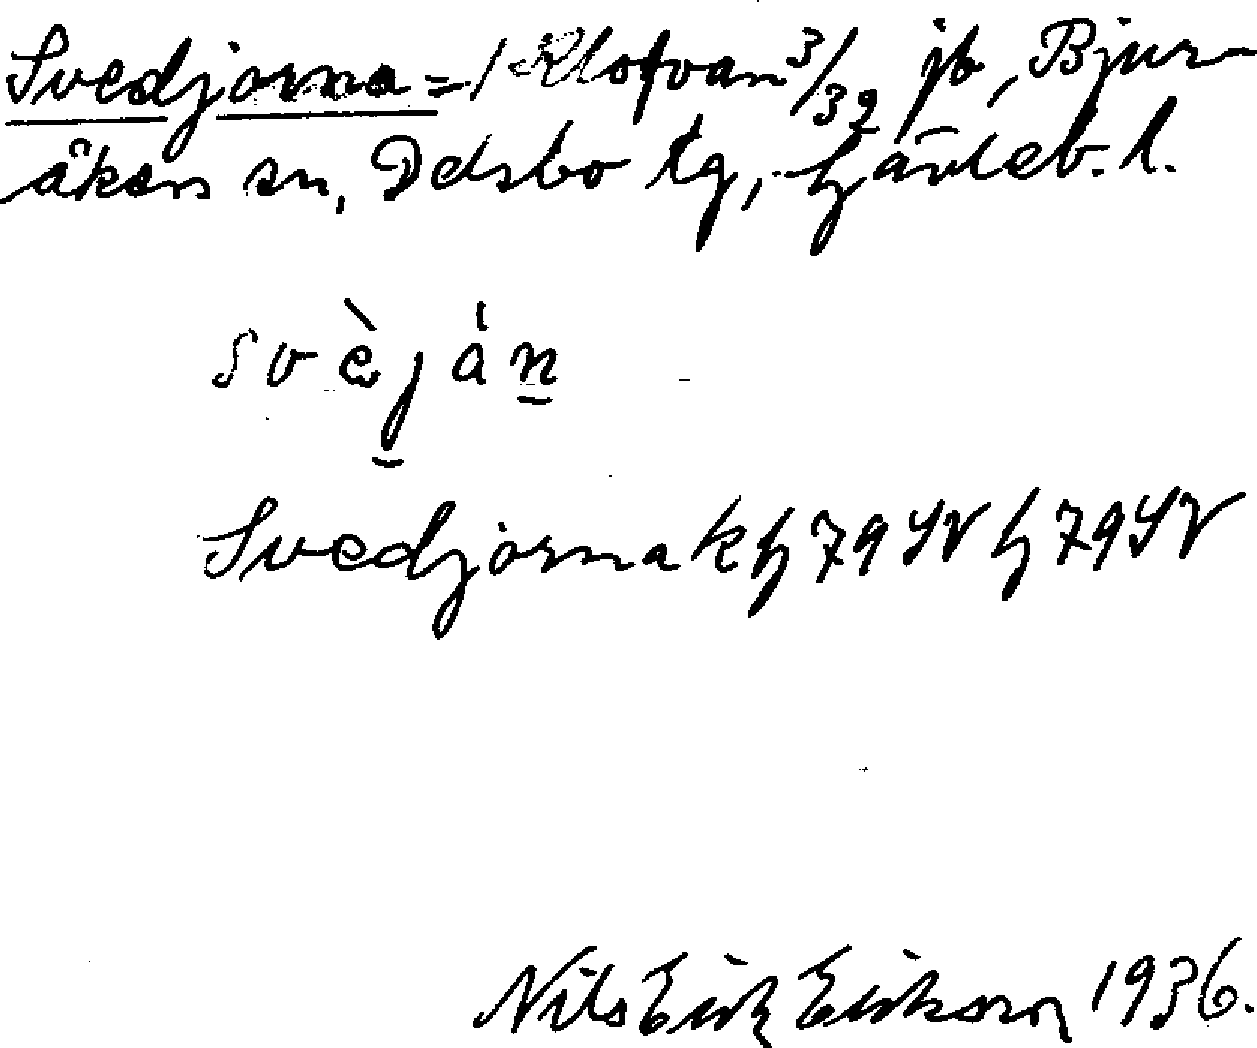 Svedjorna = 1 Klofvan 3/32 jb, Bjur-
åkers sn, Delsbo tg, Gävleb. l.
svèján
Svedjorna k h 79 SV h 79 SV
Nils Erik Eriksson 1936.